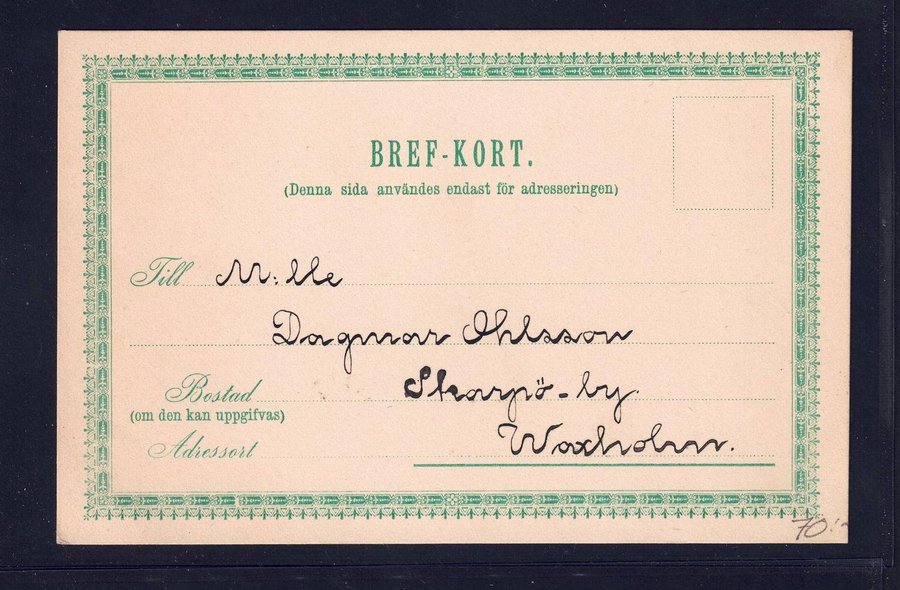 BREF-KORT.
(Denna sida användes endast för adresseringen)
Till M:lle
Dagmar Ohlsson
Bostad Skarpö-by
(om den kan uppgifvas)
Adressort Waxholm.
70:-